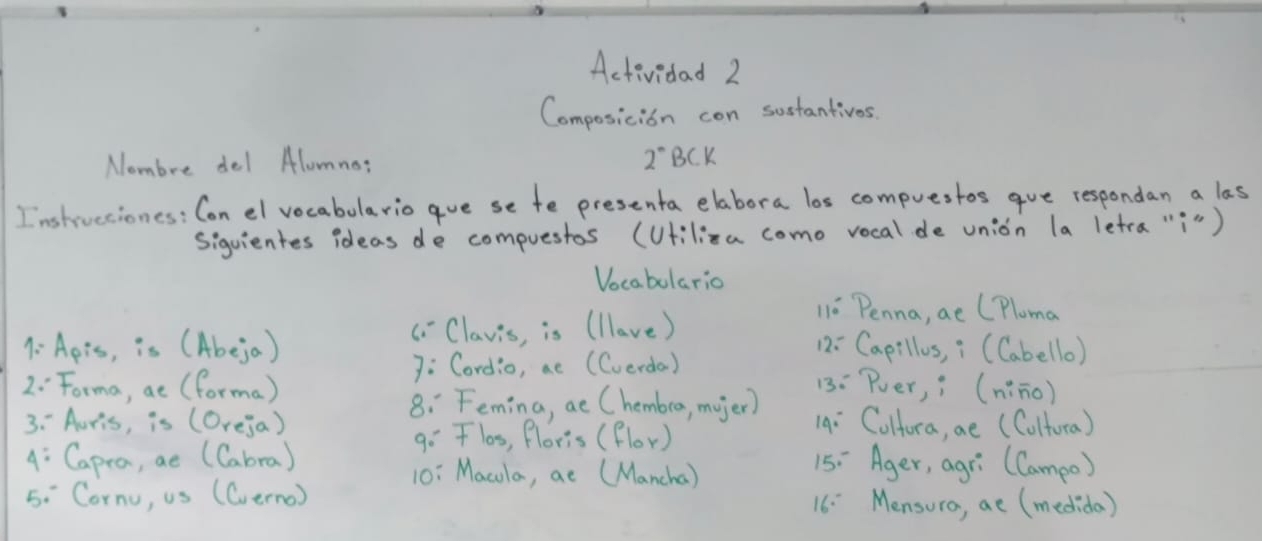 Actividad 2
Composición con sustantivos.
Nombre del Alumno: 2° BCK
Instrucciones: Con el vocabulario que se te presenta elabora los compuestos que respondan a las
Siguientes ideas de compuestos (Utiliza como vocal de unión la letra "i")
Vocabulario
1.- Apis, is (Abeja)
2.- Forma, ae (forma)
3.- Auris, is (Oreja)
4.- Capra, ae (Cabra)
5.- Cornu, us (Cuerno)
6.- Clavis, is (llave)
7.- Cordio, ae (Cuerda)
8.- Femina, ae (hembra, mujer)
9.- Flos, floris (flor)
10.- Macula, ae (Mancha)
11.- Penna, ae (Pluma
12.- Capillus, i (Cabello)
13.- Puer, i (niño)
14.- Cultura, ae (Cultura)
15.- Ager, agri (Campo)
16.- Mensura, ae (medida)